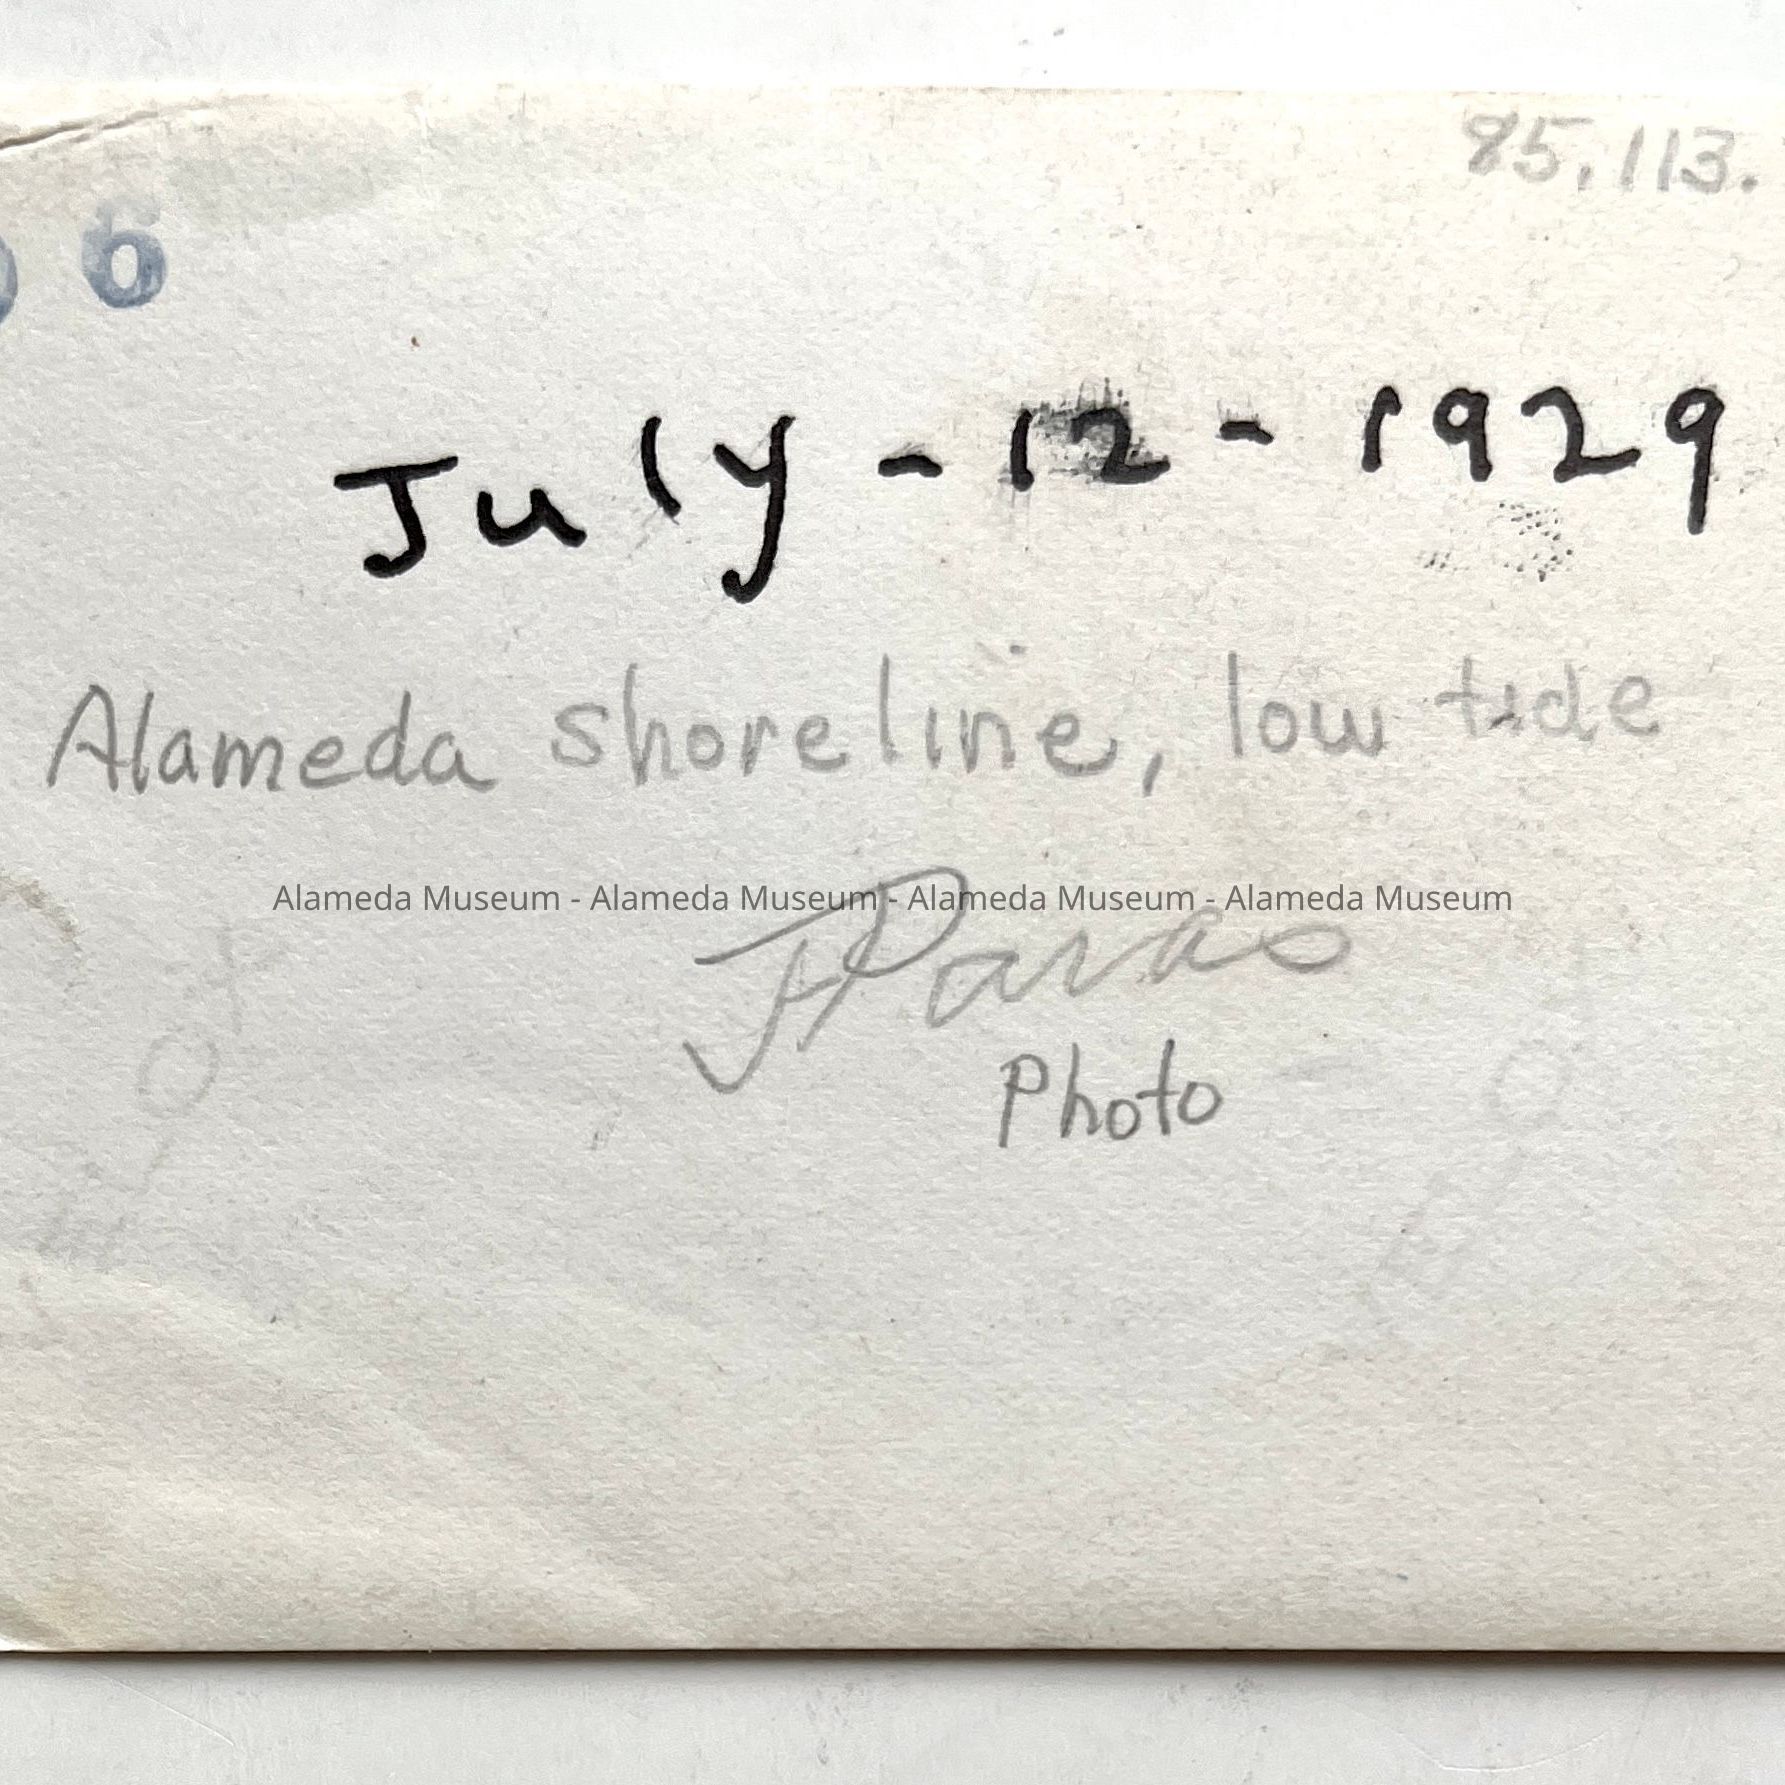 85.113.
6
July - 12 - 1929
Alameda shoreline, low tide
Alameda Museum - Alameda Museum - Alameda Museum - Alameda Museum
Photo